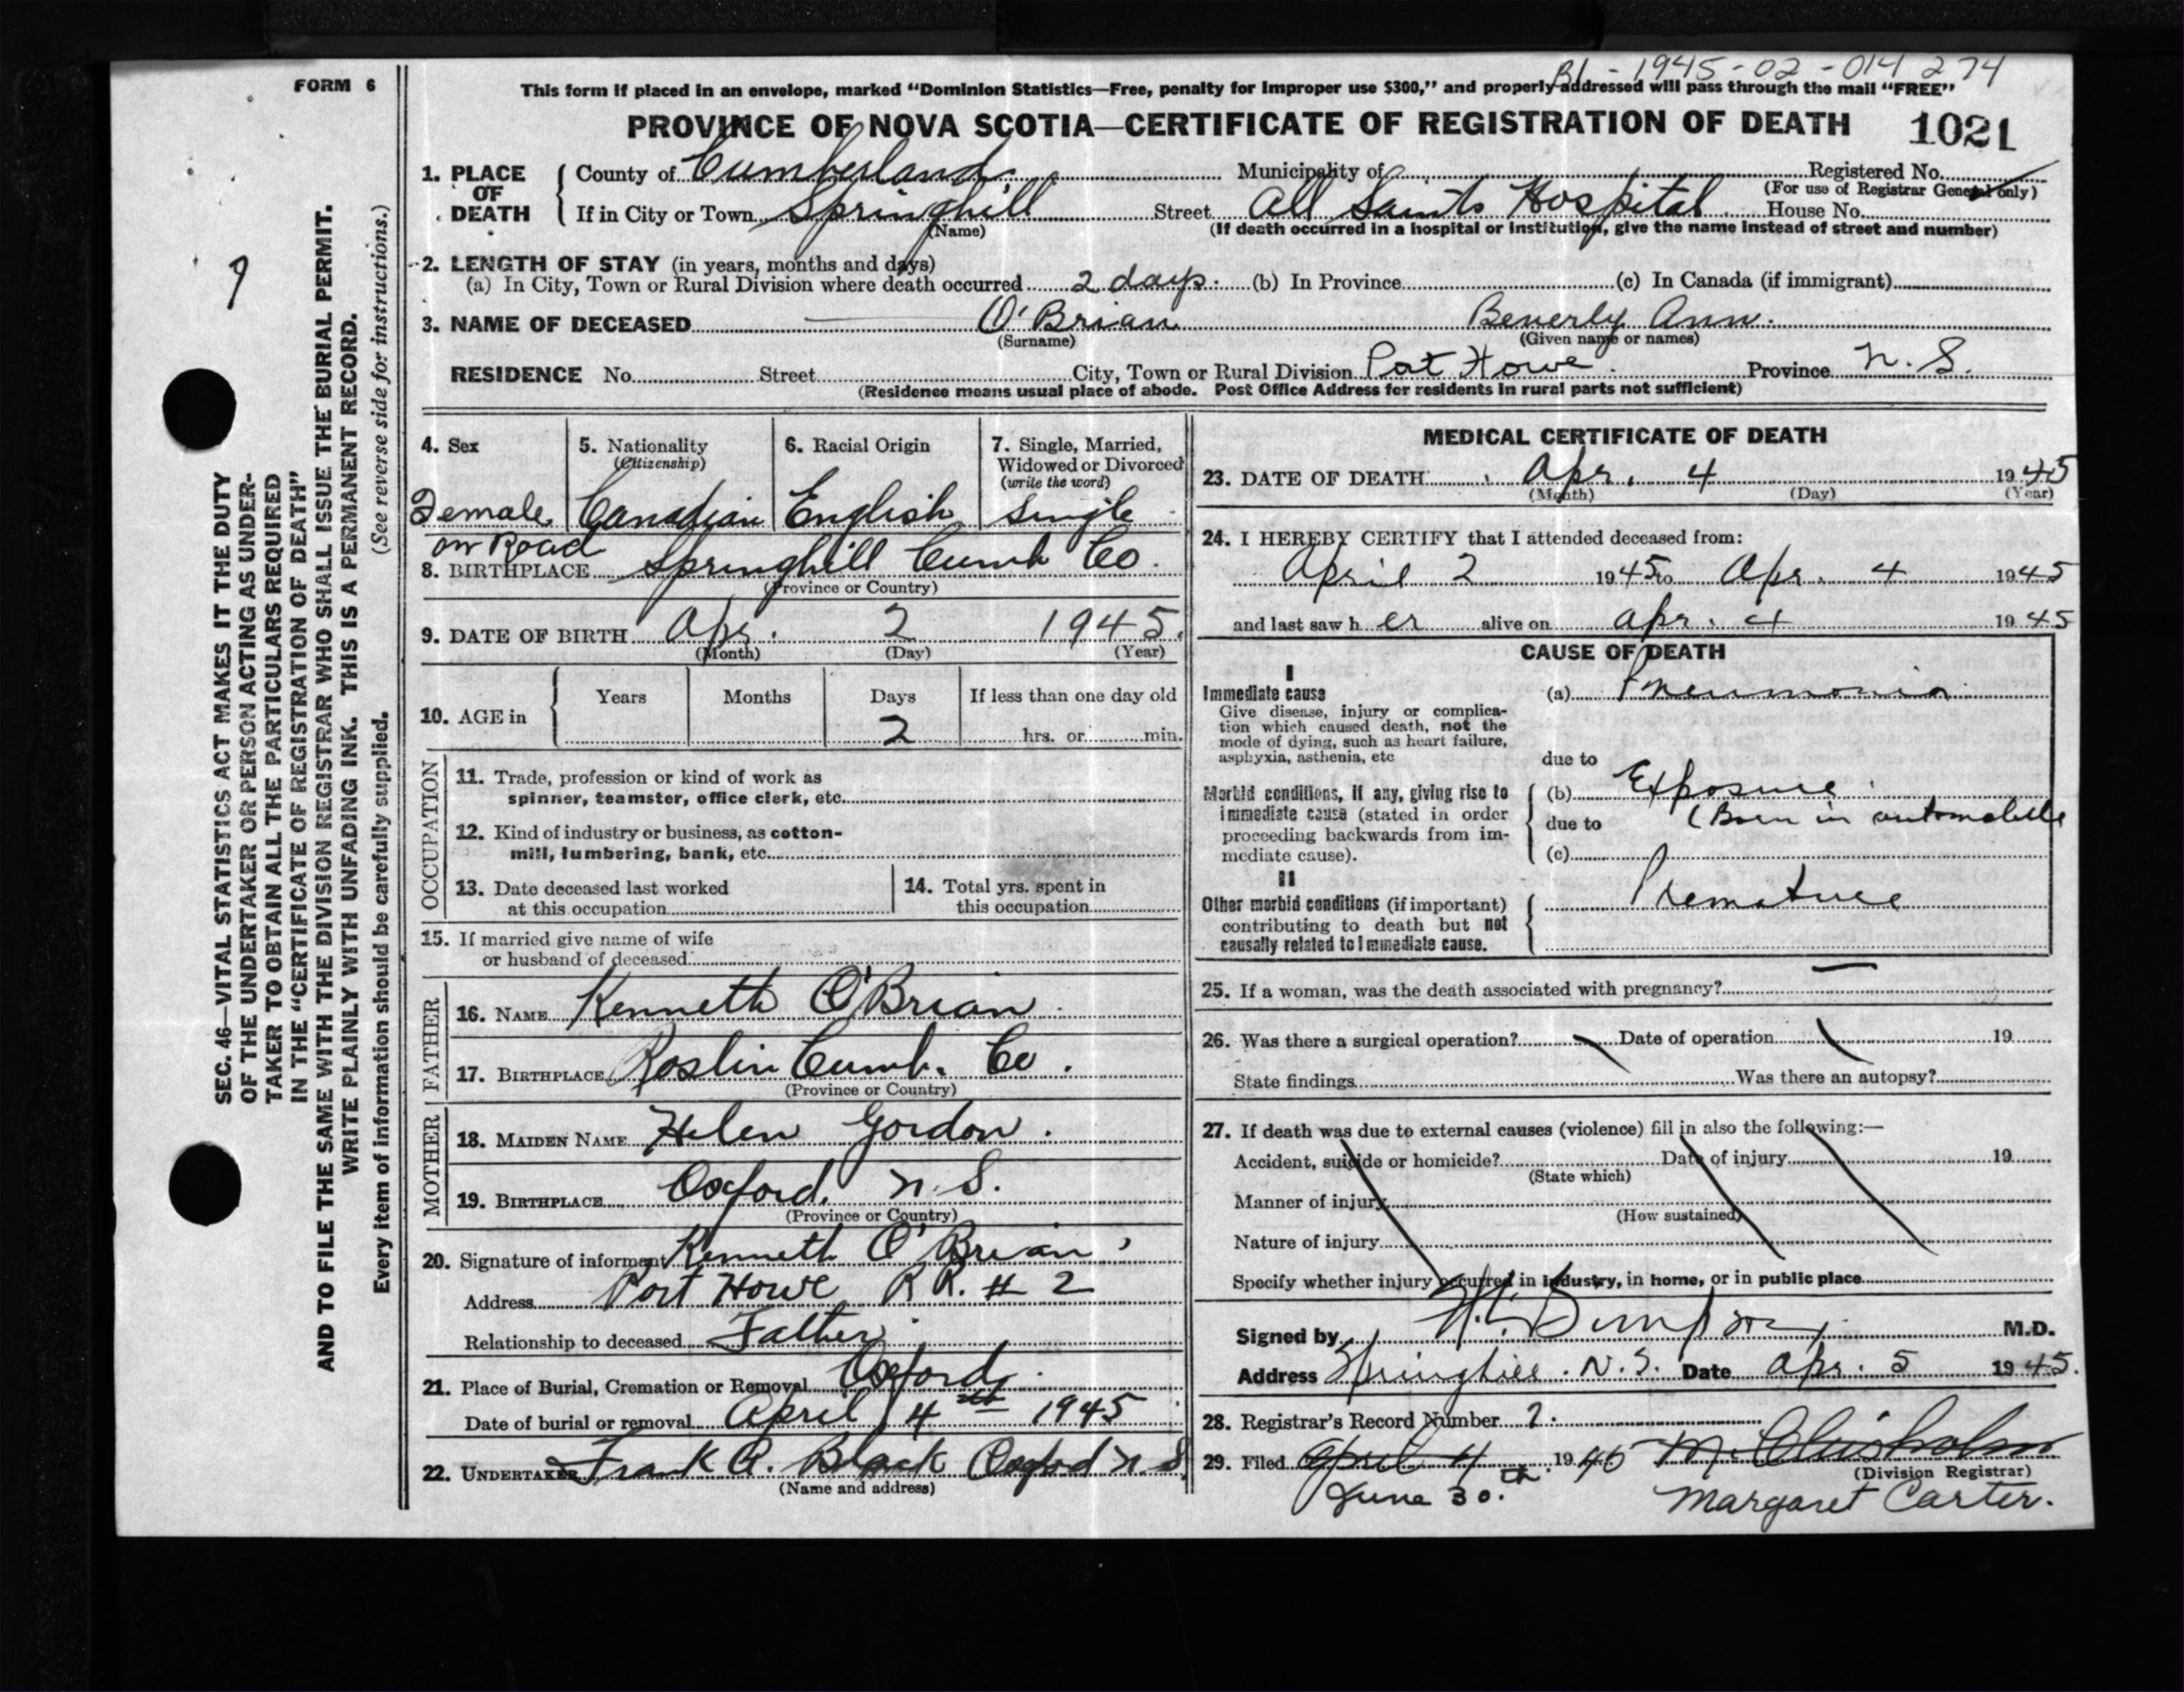 B1-1945-02-014274
FORM 6
This form if placed in an envelope, marked “Dominion Statistics—Free, penalty for improper use $300,” and properly addressed will pass through the mail “FREE”
PROVINCE OF NOVA SCOTIA—CERTIFICATE OF REGISTRATION OF DEATH 1021
1. PLACE OF DEATH
County of Cumberland Municipality of Registered No.
(For use of Registrar General only)
If in City or Town Springhill Street All Saints Hospital House No.
(Name) (If death occurred in a hospital or institution, give the name instead of street and number)
2. LENGTH OF STAY (in years, months and days)
(a) In City, Town or Rural Division where death occurred 2 days. (b) In Province (c) In Canada (if immigrant)
3. NAME OF DECEASED O'Brian Beverly Ann.
(Surname) (Given name or names)
RESIDENCE No. Street City, Town or Rural Division Port Howe. Province N. S.
(Residence means usual place of abode. Post Office Address for residents in rural parts not sufficient)
4. Sex
Female
5. Nationality
(Citizenship)
Canadian
6. Racial Origin
English
7. Single, Married,
Widowed or Divorced
(write the word)
Single
on Road
8. BIRTHPLACE Springhill Cumb Co.
(Province or Country)
9. DATE OF BIRTH Apr. 2 1945.
(Month) (Day) (Year)
10. AGE in Years Months Days If less than one day old
2 hrs. or min.
OCCUPATION
11. Trade, profession or kind of work as
spinner, teamster, office clerk, etc.
12. Kind of industry or business, as cotton-
mill, lumbering, bank, etc.
13. Date deceased last worked
at this occupation
14. Total yrs. spent in
this occupation
15. If married give name of wife
or husband of deceased
FATHER
16. NAME Kenneth O'Brian
17. BIRTHPLACE Roslin Cumb. Co.
(Province or Country)
MOTHER
18. MAIDEN NAME Helen Gordon.
19. BIRTHPLACE Oxford. N. S.
(Province or Country)
20. Signature of informant Kenneth O'Brian
Address Port Howe R R. # 2
Relationship to deceased Father
21. Place of Burial, Cremation or Removal Oxford
Date of burial or removal April 4th 1945
22. UNDERTAKER Frank A. Black Oxford N. S
(Name and address)
MEDICAL CERTIFICATE OF DEATH
23. DATE OF DEATH Apr. 4 1945
(Month) (Day) (Year)
24. I HEREBY CERTIFY that I attended deceased from:
April 2 1945 to Apr. 4 1945
and last saw her alive on Apr. 4 1945
CAUSE OF DEATH
I
Immediate cause
Give disease, injury or complica-
tion which caused death, not the
mode of dying, such as heart failure,
asphyxia, asthenia, etc
(a) Pneumonia
due to
Morbid conditions, if any, giving rise to
immediate cause (stated in order
proceeding backwards from im-
mediate cause).
(b) Exposure
due to (Born in automobile
(c)
II
Other morbid conditions (if important)
contributing to death but not
causally related to immediate cause.
Premature
25. If a woman, was the death associated with pregnancy? —
26. Was there a surgical operation? Date of operation 19
State findings Was there an autopsy?
27. If death was due to external causes (violence) fill in also the following:—
Accident, suicide or homicide? Date of injury 19
(State which)
Manner of injury
(How sustained)
Nature of injury
Specify whether injury occurred in industry, in home, or in public place
Signed by Simpson M.D.
Address Springhill. N.S. Date Apr. 5 1945.
28. Registrar's Record Number 7.
29. Filed April 4 1945 M. Chisholm
(Division Registrar)
June 30.th Margaret Carter.
9
SEC. 46—VITAL STATISTICS ACT MAKES IT THE DUTY
OF THE UNDERTAKER OR PERSON ACTING AS UNDER-
TAKER TO OBTAIN ALL THE PARTICULARS REQUIRED
IN THE “CERTIFICATE OF REGISTRATION OF DEATH”
AND TO FILE THE SAME WITH THE DIVISION REGISTRAR WHO SHALL ISSUE THE BURIAL PERMIT.
WRITE PLAINLY WITH UNFADING INK. THIS IS A PERMANENT RECORD.
Every item of information should be carefully supplied. (See reverse side for instructions.)